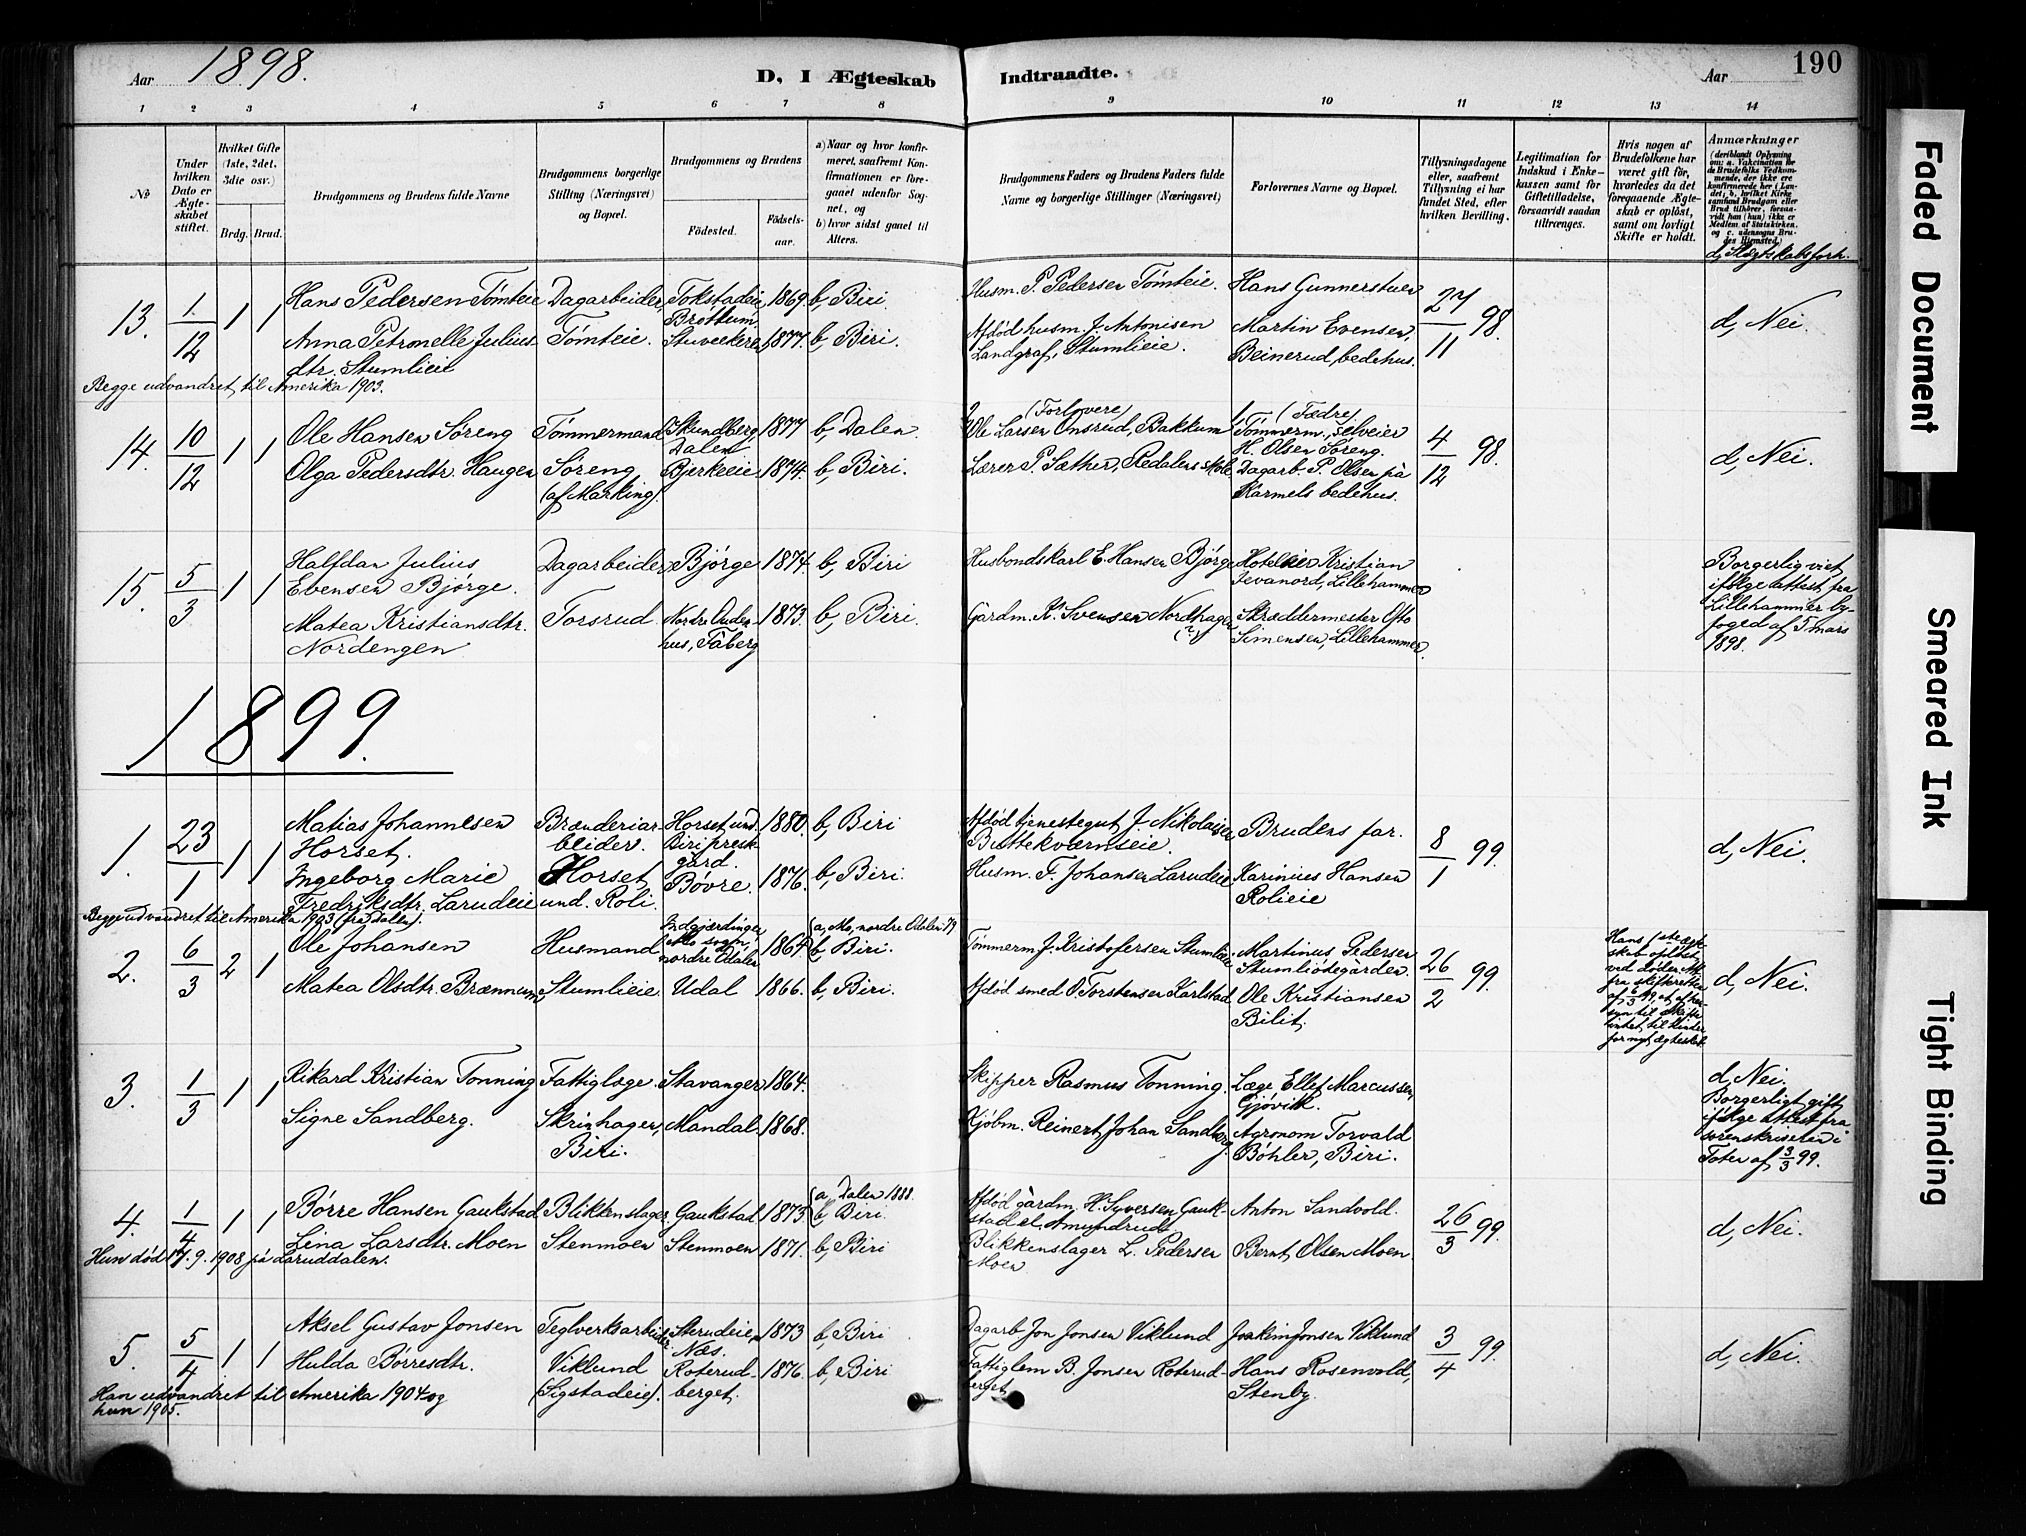 Aar 1898.
D, I Ægteskab Indtraadte.
Aar 190
1 2 3 4 5 6 7 8 9 10 11 12 13 14
No
Under hvilken Dato er Ægteskabet stiftet.
Hvilket Gifte (1ste, 2det, 3die osv.)
Brdg. Brud.
Brudgommens og Brudens fulde Navne
Brudgommens borgerlige Stilling (Næringsvei) og Bopæl.
Brudgommens og Brudens
Födested. Födselsaar.
a) Naar og hvor konfirmeret, saafremt Konfirmationen er foregaaet udenfor Sognet, og
b) hvor sidst gaaet til Alters.
Brudgommens Faders og Brudens Faders fulde Navne og borgerlige Stillinger (Næringsvei)
Forlovernes Navne og Bopæl.
Tillysningsdagene eller, saafremt Tillysning ei har fundet Sted, efter hvilken Bevilling.
Legitimation for Indskud i Enkekassen samt for Giftetilladelse, forsaavidt saadan tiltrænges.
Hvis nogen af Brudefolkene har været gift för, hvorledes da det foregaaende Ægteskab er oplöst, samt om lovligt Skifte er holdt.
Anmærkninger
(deriblandt Oplysning om: a. Vakcination for de Brudefolks Vedkommende, der ikke ere konfirmerede her i Landet; b. hvilket Kirkesamfund Brudgom eller Brud tilhörer, forsaavidt han (hun) ikke er Medlem af Statskirken, og c. udensogns Brudes Hjemsted.)
d, Slegtskabsforh.
13. 1/12 1 1
Hans Pedersen Tømteie Dagarbeider Tokstadeie, Brøttum 1869 b, Biri
Husm. P. Pedersen Tømteie. Hans Gunnerstuen 27/11 98. d, Nei.
Anna Petronelle Juliusdtr. Stumlieie Tømteie. 1877. b, Biri.
Afdød husm. J. Antonisen Landgraf, Stumlieie. Martin Evensen, Beinerud, bedehus.
Begge udvandret til Amerika 1903.
14. 10/12 1 1
Ole Hansen Søreng Tømmermand Skundberg, Dalen 1877 b, Dalen.
2, (Forlovere) Ole Larsen Onsrud, Bakkum 1, (Fædre) Tømmerm., selveier H. Olsen Søreng. 4/12 98. d, Nei.
Olga Pedersdtr. Haugen Søreng (af Marking). Bjerkeeie 1874. b, Biri.
Lærer P. Sæther, Redalens skole. Dagarb. P. Olsen på Karmels bedehus.
15. 5/3 1 1
Halfdan Julius Evensen Bjørge. Dagarbeider Bjørge 1874. b, Biri
Husbondskarl E. Hansen Bjørge Hoteleier Kristian Jevanord, Lillehammer
Borgerlig viet ifølge attest fra Lillehammer byfoged af 5 mars 1898.
Matea Kristiansdtr. Nordengen Torsrud Nordre hus, Fåberg 1873. b, Biri.
Gårdm. K. Svensen Nordhagen (?) Skræddermester Otto Simensen, Lillehammer.
1899.
1. 23/1 1 1
Matias Johannesen Horset. Brænderiarbeider. Horset und. Biri prestgård. 1880. b, Biri
Afdød tjenestegut J. Nikolaisen Buttekværnseie. Brudens far. 8/1 99. d, Nei.
Ingeborg Marie Fredriksdtr. Larudeie Horset, und. Roli. Bøvre. 1876. b, Biri.
Husm. F. Johansen Larudeie Karinius Hansen Rolieie
Begge udvandret til Amerika 1903 (fra Dalen).
2. 6/3 2 1
Ole Johansen Husmand Mo sogn, nordre Odalen 1864. (a, Mo, nordre Odalen 79 b, Biri.
Tømmerm. J. Kristofersen Stumlieie. Martinus Pedersen Stumliødegården. 26/2 99. d, Nei.
Matea Olsdtr. Brænnum, Stumlieie. Udal 1866. b, Biri.
Afdød smed O. Torstensen Karlstad Ole Kristiansen Bilit.
Hans 1ste ægteskab opløst ved døden. Att. fra skifteretten af 6/3 99, at af hensyn til skifte intet til hinder for nyt ægteskab.
3. 1/3 1 1
Rikard Kristian Tonning Fattiglæge. Stavanger 1864.
Skipper Rasmus Tonning. Læge Ellef Marcussen, Gjøvik.
Signe Sandberg. Skrinhagen, Biri. Mandal. 1868.
Kjøbm. Reinert Johan Sandberg. Agronom Torvald Bøhler, Biri.
d, Nei. Borgerligt gift ifølge attest fra sorenskriveren i Toten af 3/3 99.
4. 1/4 1 1
Børre Hansen Gaukstad Blikkenslager. Gaukstad 1873. (a, Dalen 1888. b, Biri.
Afdød gårdm. H. Syversen Gaukstad el. Amundrud. Anton Sandvold. 26/3 99. d, Nei.
Lina Larsdtr. Moen Stenmoen Stenmoen 1871. b, Biri
Blikkenslager L. Pedersen Moen Bernt Olsen Moen.
Hun død 17.9.1908 på Laruddalen.
5. 5/4 1 1
Aksel Gustav Jonsen Teglverksarbeider Sterudeien Næs. 1873 b, Biri
Dagarb Jon Jonsen Viklund Joakim Jonsen Viklund 3/4 99. d, Nei.
Hulda Børresdtr. Viklund (Sigstadeie). Roterudberget. 1876. b, Biri
Fattiglem B. Jonsen Roterudberget Hans Rosenvold, Stenby.
Han udvandret til Amerika 1904 og hun 1905.
Faded Document
Smeared Ink
Tight Binding